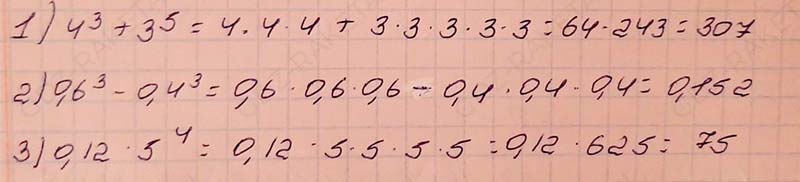 1) 4³ + 3⁵ = 4 · 4 · 4 + 3 · 3 · 3 · 3 · 3 = 64 · 243 = 307
2) 0,6³ - 0,4³ = 0,6 · 0,6 · 0,6 - 0,4 · 0,4 · 0,4 = 0,152
3) 0,12 · 5⁴ = 0,12 · 5 · 5 · 5 · 5 = 0,12 · 625 = 75